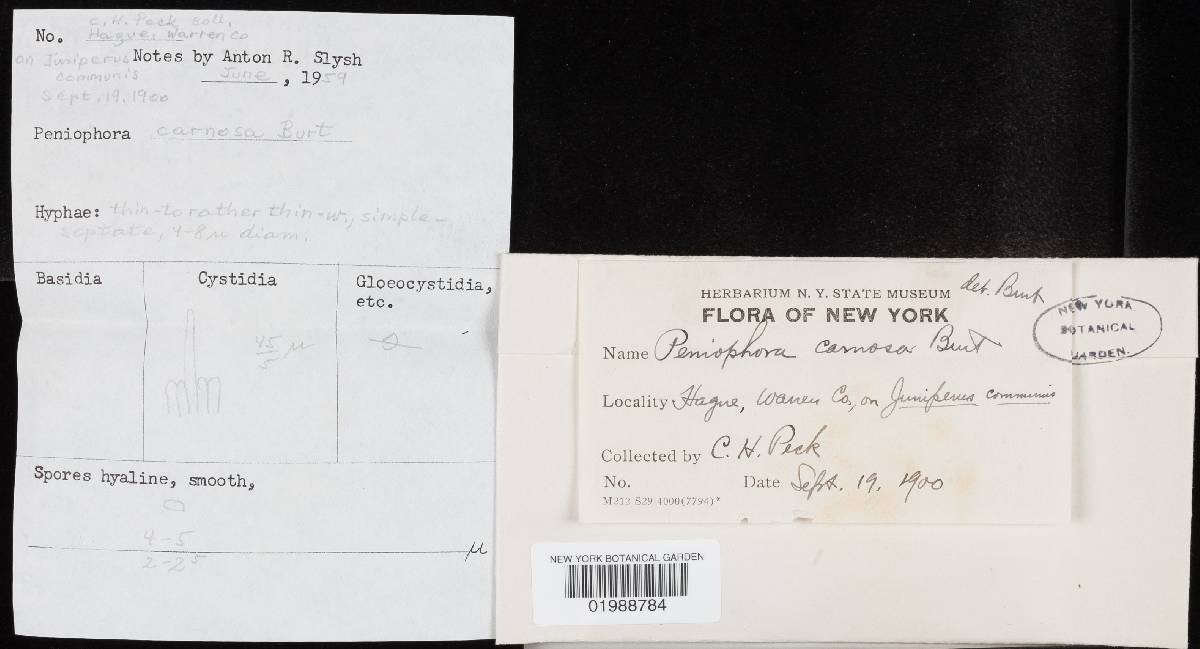 c. H. Peck coll.
No. Hague, Warren Co
on Juniperus Notes by Anton R. Slysh
communis June, 1959
Sept. 19, 1900
Peniophora carnosa Burt
Hyphae: thin-to rather thin-w., simple-
septate, 4-8 µ diam.
Basidia
Cystidia
Gloeocystidia,
etc.
45/5 µ
Spores hyaline, smooth,
4-5
µ
2-2⁵
HERBARIUM N. Y. STATE MUSEUM det. Burt
FLORA OF NEW YORK
Name Peniophora carnosa Burt
Locality Hague, Warren Co., on Juniperus communis
Collected by C. H. Peck
No. Date Sept. 19, 1900
M212 S29 4000(7794)*
NEW YORK
BOTANICAL
GARDEN.
NEW YORK BOTANICAL GARDEN
01988784